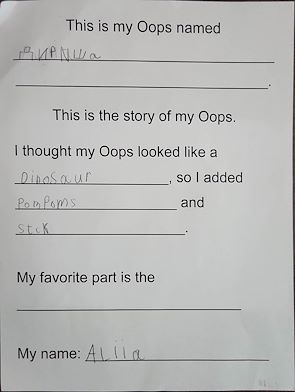 This is my Oops named
This is the story of my Oops.
I thought my Oops looked like a
Dinosaur, so I added
PomPoms and
Stck.
My favorite part is the
My name: ALiia